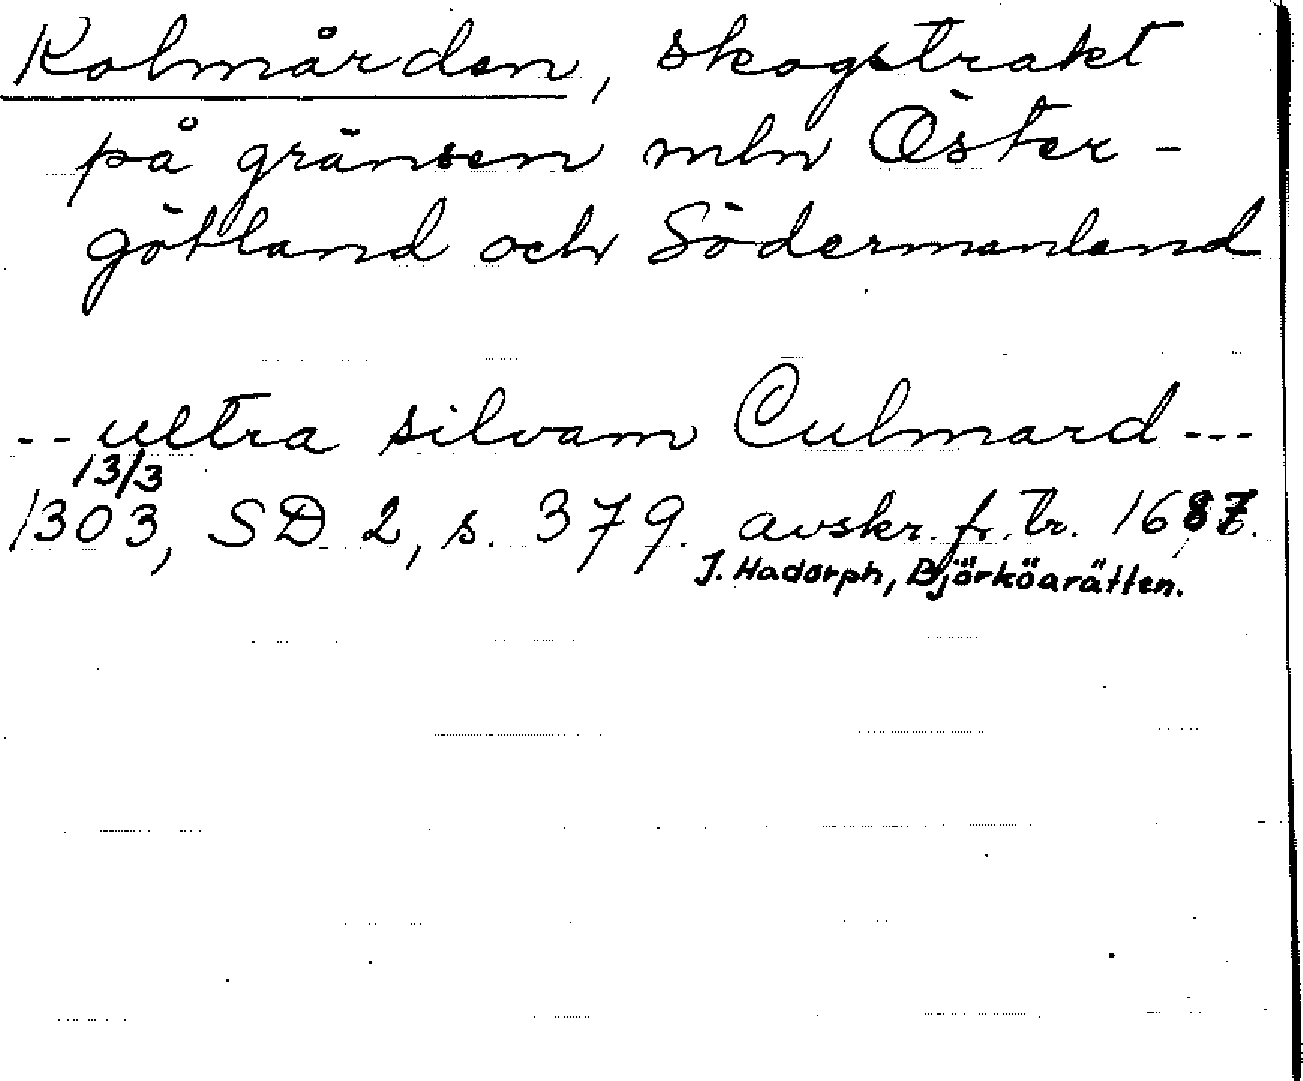 Kolmården, skogstrakt
på gränsen mln Öster-
götland och Södermanland
-- ultra silvam Culmard ---
13/3
1303, SD 2, s. 379. avskr. fr. tr. 1687.
J. Hadorph, Björköarätten.